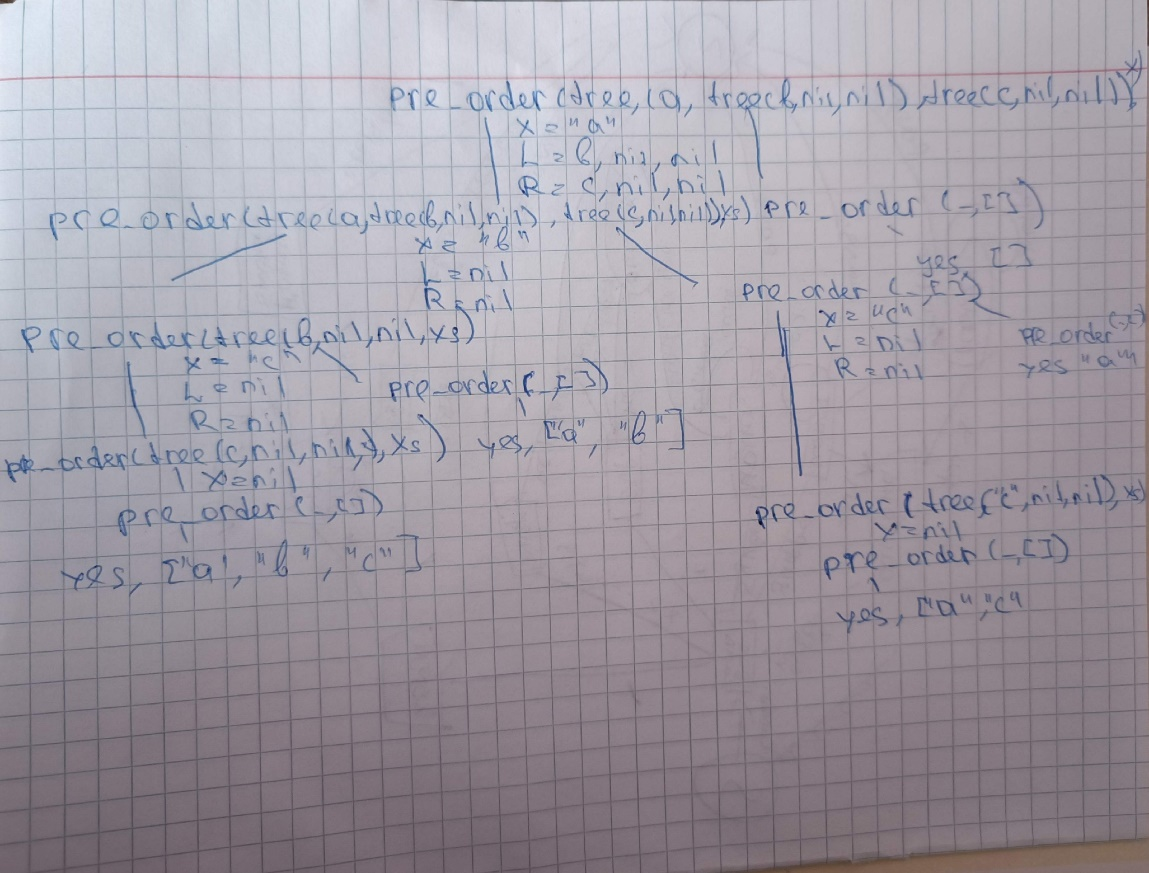 pre_order(tree,(a, tree(b,nil,nil),tree(c,nil,nil)),x)
x = "a"
L = b, nil, nil
R = c, nil, nil
pre_order(tree(a,tree(b,nil,nil), tree(c,nil,nil)),xs) pre_order (_,[])
x = "b"
L = nil
R = nil
yes, []
pre_order (_,[])
pre_order(tree(b,nil,nil,xs)
x = "c"
L = nil
R = nil
pre_order(_,[])
yes, ["a", "b"]
x = "c"
L = nil
R = nil
pre_order
yes "a"
pre_order(tree(c,nil,nil,),xs)
x=nil
pre_order (_,[])
yes, ["a", "b", "c"]
pre_order (tree("c",nil,nil),xs)
x=nil
pre_order (_,[])
yes, ["a","c"